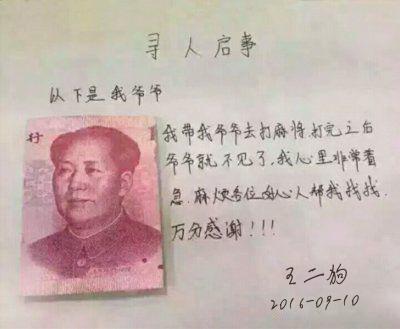 寻人启事
以下是我爷爷
我带我爷爷去打麻将打完之后
爷爷就不见了.我心里非常着
急.麻烦各位好心人帮我找找.
万分感谢!!!
王二狗
2016-09-10
行